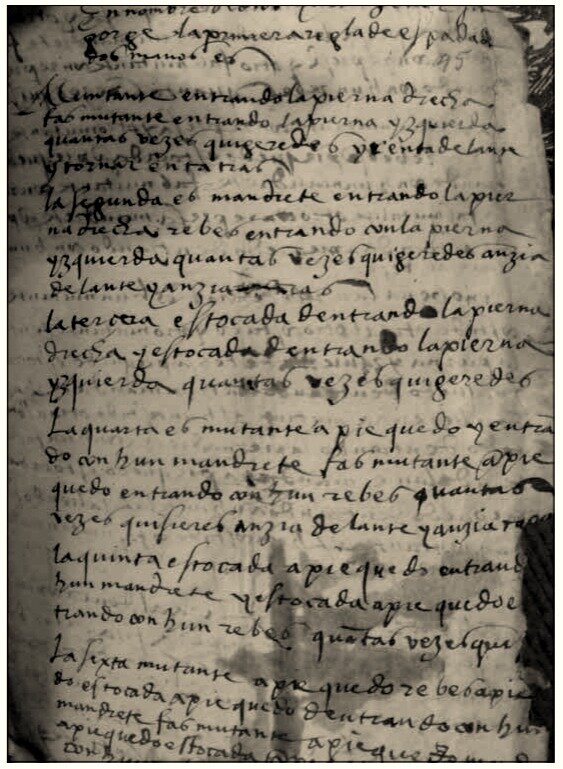 En nombre
gorge la primera regla de espada de
dos manos es
Mutante entrando la pierna drecha
fas mutante entrando la pierna yzquierda
quantas vezes quigeredes yr enta delante
y tornar enta tras
la segunda es mandrete entrando la pier
na drecha rebes entrando con la pierna
yzquierda quantas vezes quigeredes anzia
delante y anzia tras
la tercera estocada dentrando la pierna
drecha y estocada dentrando la pierna
yzquierda quantas vezes quigeredes
La quarta es mutante a pie quedo y entran
do con hun mandrete fas mutante a pie
quedo entrando con hun rebes quantas
vezes quisieres anzia delante y anzia
la quinta estocada a pie quedo entrand
hun mandrete y estocada a pie quedo e
trando con hun rebes quantas vezes qui
La sixta mutante a pie quedo rebes a pie
do estocada a pie quedo dentrando con hun
mandrete fas mutante a pie quedo
a pie quedo estocada
con hun